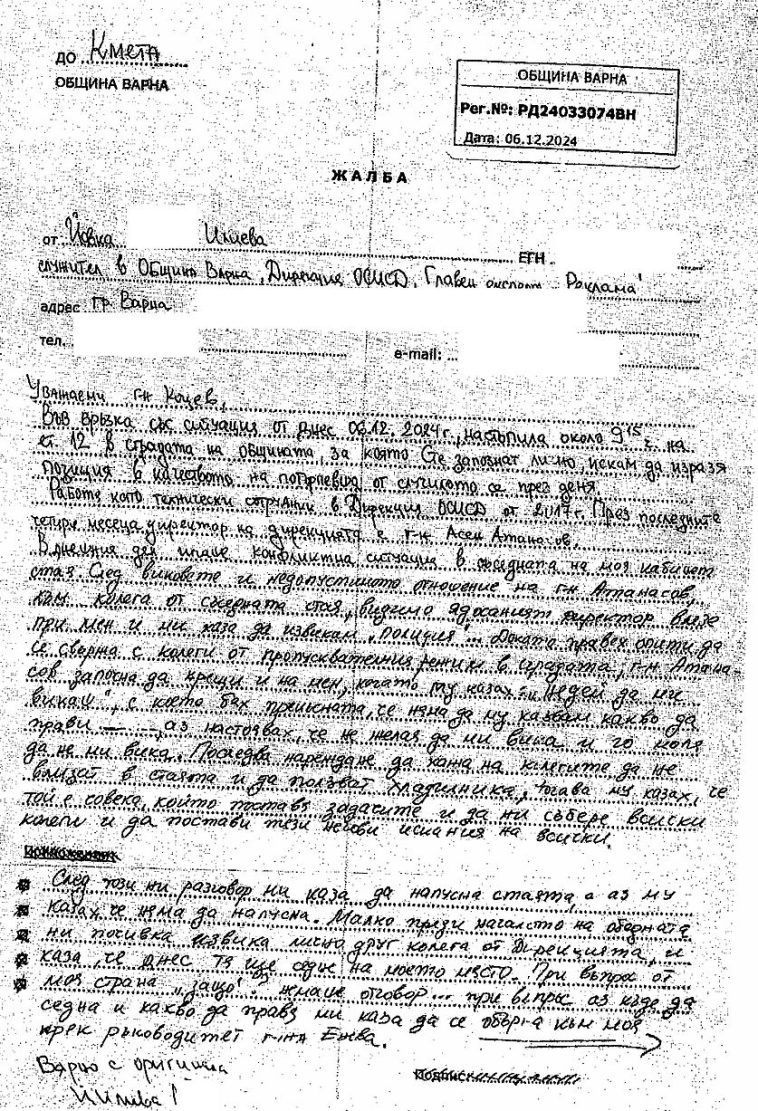 ДО Кмета
ОБЩИНА ВАРНА
ОБЩИНА ВАРНА
Рег.№: РД24033074ВН
Дата: 06.12.2024
ЖАЛБА
от Йовка Илиева ЕГН
служител в Община Варна, Дирекция ОСИСД, Главен експерт "Реклама"
адрес гр Варна
тел. e-mail:
Уважаеми г-н Коцев,
Във връзка със ситуация от днес 06.12.2024г., настъпила около 9 15 ч. на
ет. 12 в сградата на общината, за която сте запознат лично, искам да изразя
позиция в качеството на потърпевша от случилото се през деня.
Работя като технически сътрудник в Дирекция ОСИСД от 2017г. През последните
четири месеца директор на дирекцията е г-н Асен Атанасов.
В днешния ден имаше конфликтна ситуация в съседната на моя кабинет
стая. След виковете и недопустимото отношение на г-н Атанасов,
към колега от съседната стая, видимо ядосаният директор влезе
при мен и ми каза да извикам "полиция"... Докато правех опити да
се свържа с колеги от пропускателния режим в сградата, г-н Атана-
сов започна да крещи и на мен, когато му казах: "Недей да ми
викаш", с което бях прекъсната, че няма да му казвам какво да
прави — —, аз настоявах, че не желая да ми вика и го моля
да не ми вика. Последва нареждане да кажа на колегите да не
влизат в стаята и да ползват хладилника, тогава му казах, че
той е човека, който поставя задачите и да ни събере всички
колеги и да постави тези негови искания на всички.
След този ни разговор ми каза да напусна стаята, а аз му
казах, че няма да напусна. Малко преди началото на обедната
ни почивка извика лично друг колега от Дирекцията, и
каза, че днес тя ще седне на моето място. При въпрос от
моя страна "защо"? нямаше отговор... при въпрос аз къде да
седна и какво да правя ми каза да се обърна към моя
прек ръководител г-жа Енева.
Вярно с оригинала
Илиева